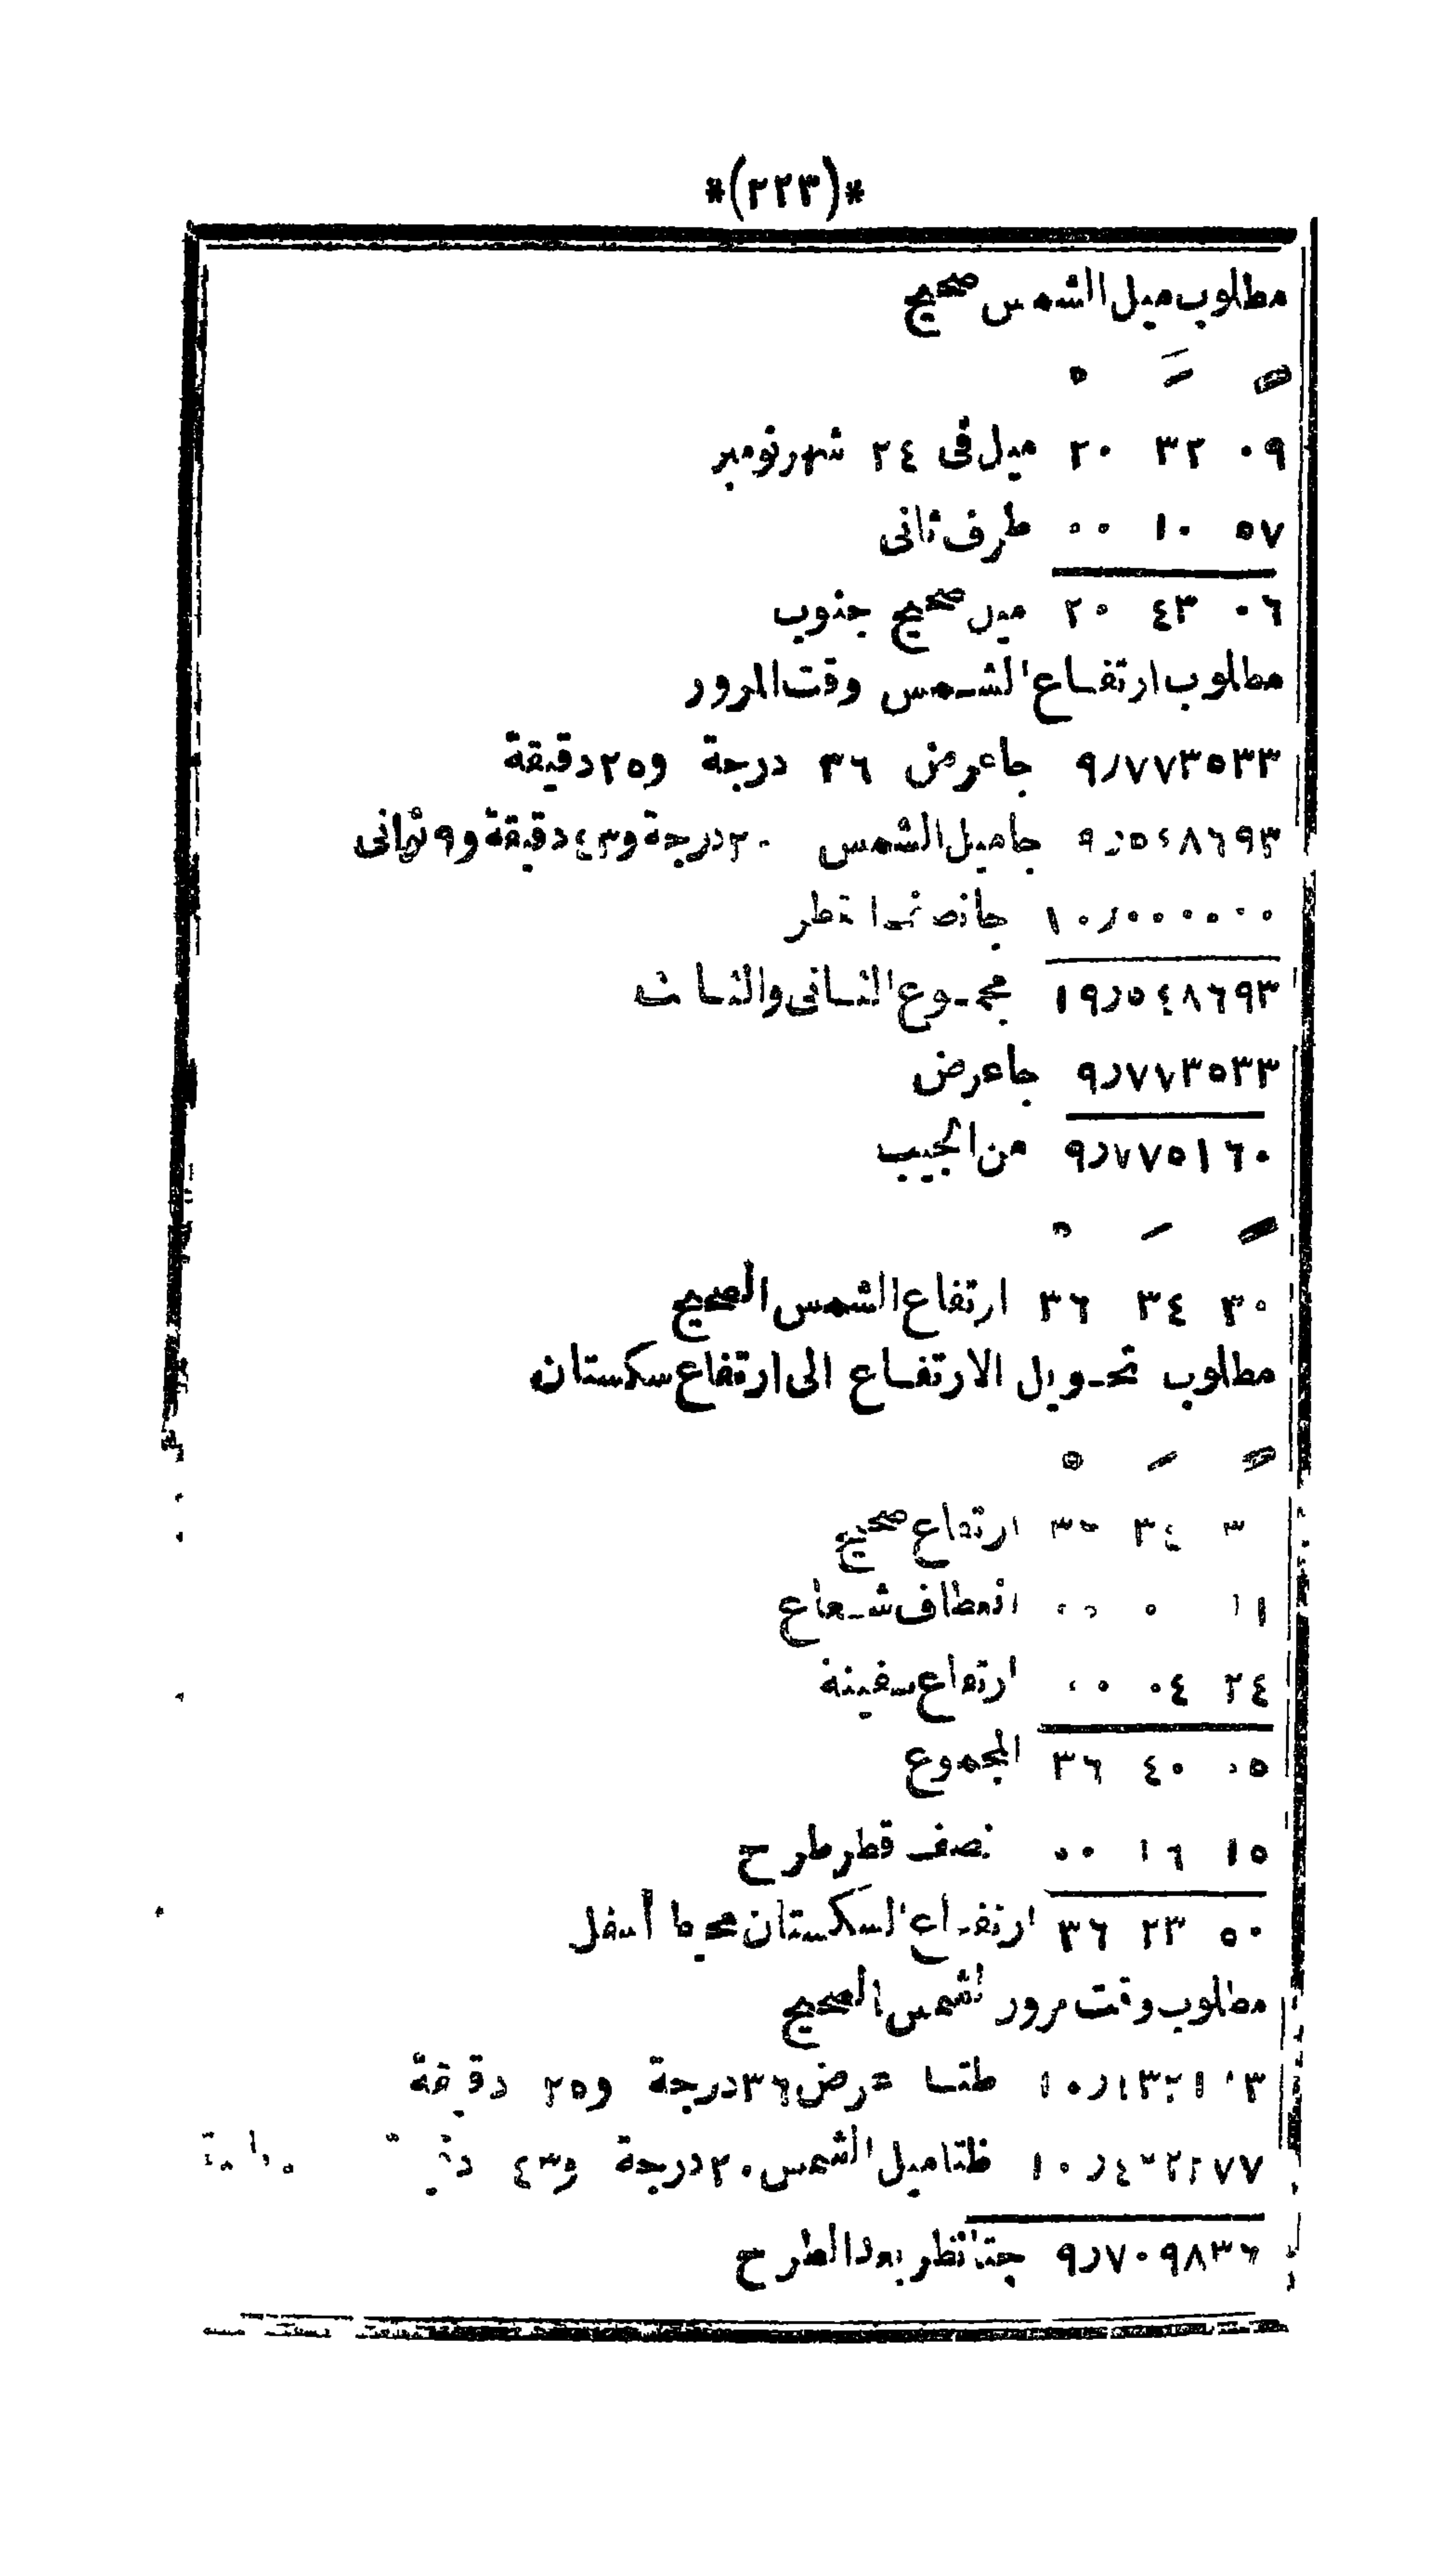 *(٢٢٣)*
مطلوب ميل الشمس صحيح
° ′ ″
٢٠ ٣٢ ٠٩ ميل فى ٢٤ شهر نومبر
٠٠ ١٠ ٥٧ طرف ثانى
٢٠ ٤٣ ٠٦ ميل صحيح جنوب
مطلوب ارتفاع الشمس وقت المرور
٩٫٧٧٣٥٣٣ جاعرض ٣٦ درجة و٢٥ دقيقة
٩٫٥٤٨٦٩٣ جاميل الشمس ٢٠ درجة و٤٣ دقيقة و٩ ثوانى
١٠٫٠٠٠٠٠٠ جانصف القطر
١٩٫٥٤٨٦٩٣ مجموع الثانى والثالث
٩٫٧٧٣٥٣٣ جاعرض
٩٫٧٧٥١٦٠ من الجيب
° ′ ″
٣٦ ٣٤ ٣٠ ارتفاع الشمس الصحيح
مطلوب تحويل الارتفاع الى ارتفاع سكستان
° ′ ″
٣٤ ارتفاع صحيح
١١ انعطاف شعاع
٠٠ ٠٤ ٢٤ ارتفاع سفينة
٣٦ ٤٠ ٠٥ المجموع
٠٠ ١٦ ١٥ نصف قطر طرح
٣٦ ٢٣ ٥٠ ارتفاع السكستان محيط أسفل
مطلوب وقت مرور الشمس الصحيح
طتا عرض ٣٦ درجة و٢٥ دقيقة
ظتاميل الشمس ٢٠ درجة و٤٣
٩٫٧٠٩٨٣٦ جتا نظر بعد الطرح